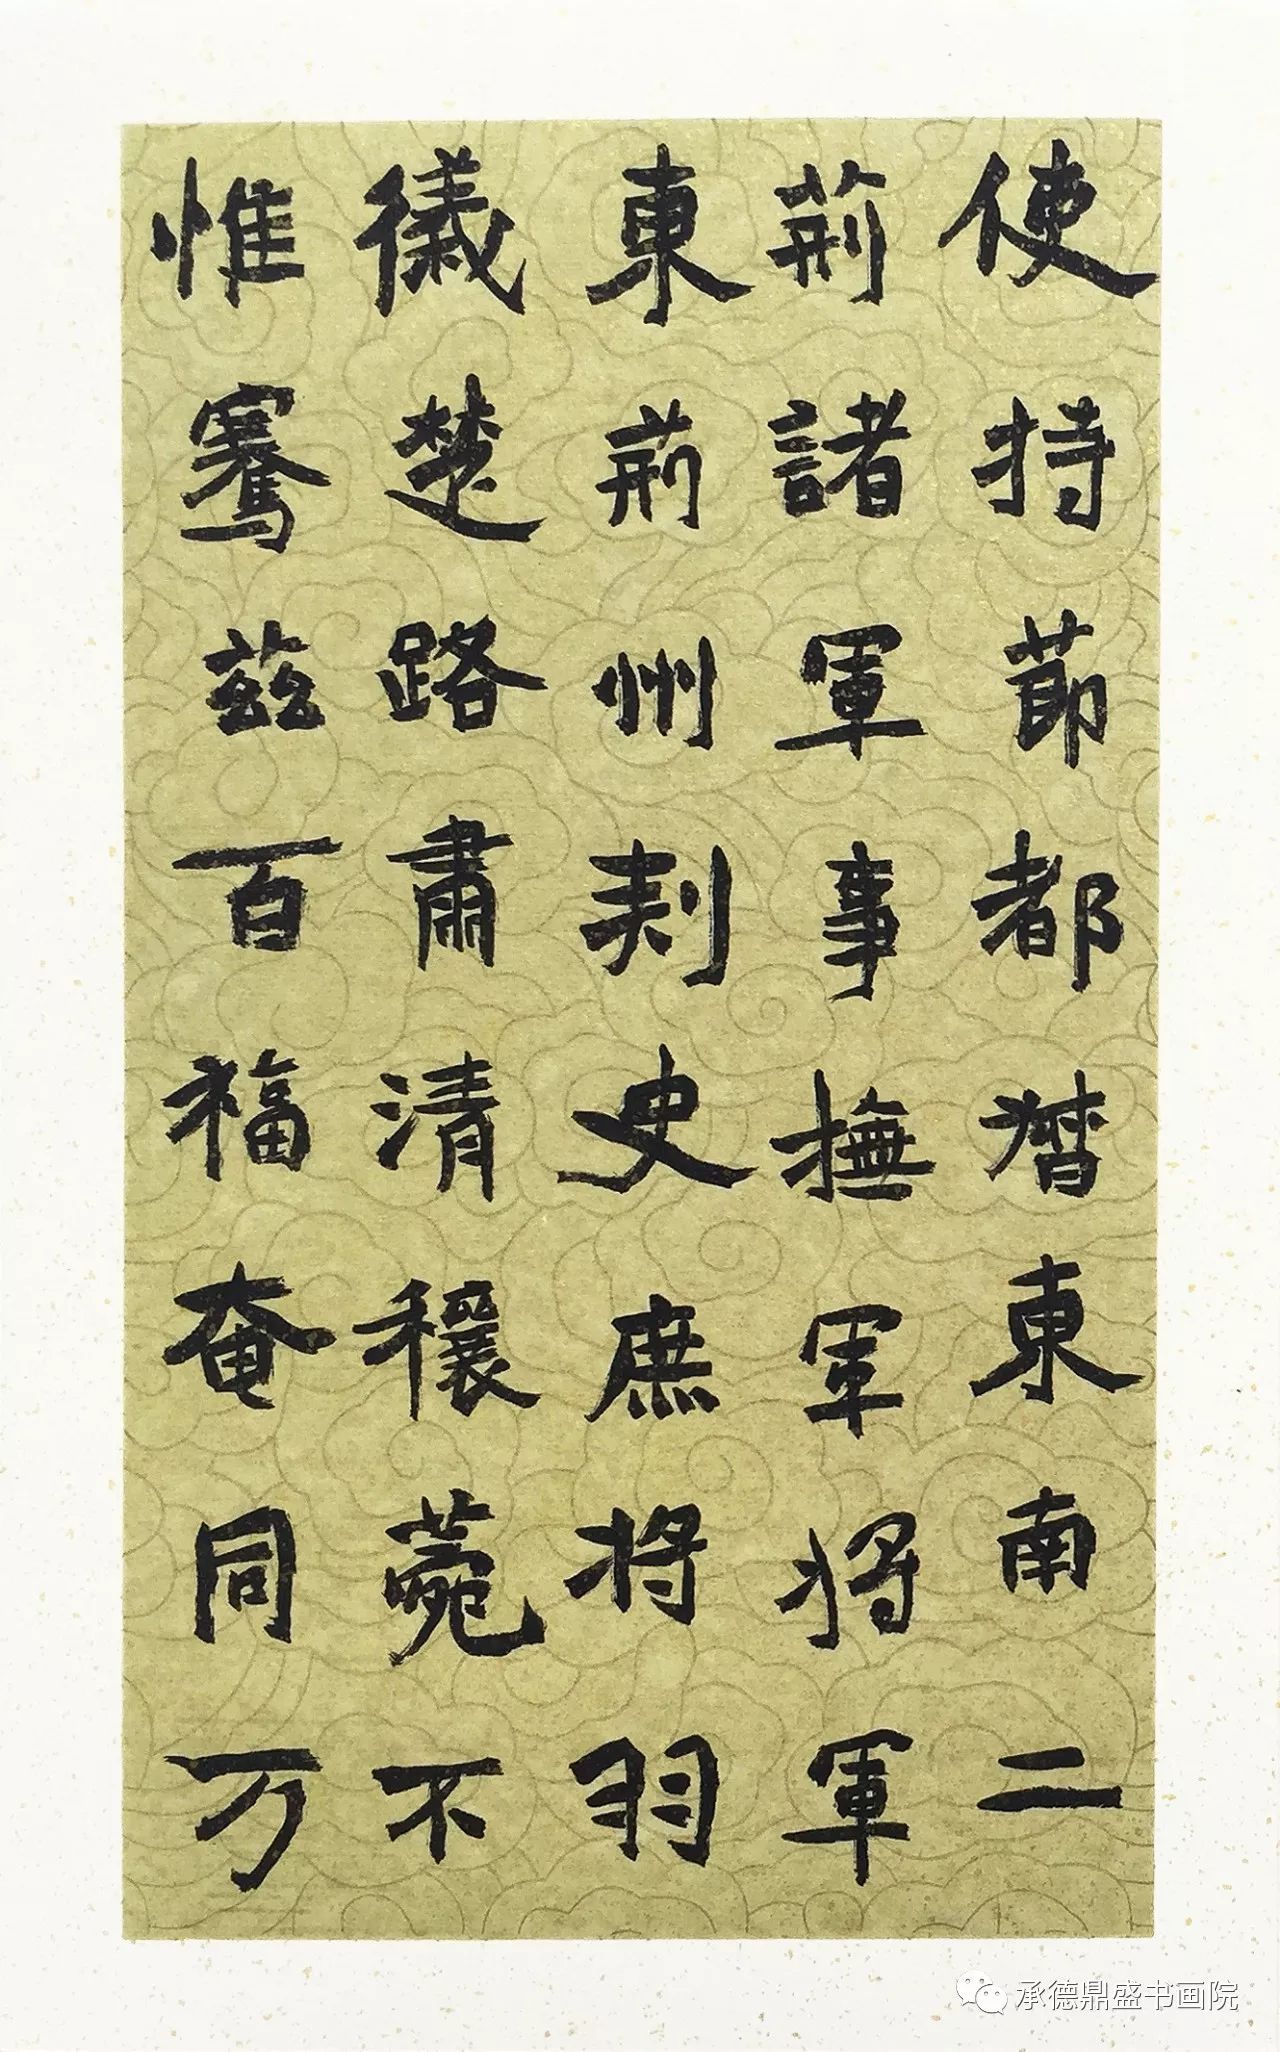 使持節都督東南二
荊諸軍事撫軍將軍
東荊州刺史庶將羽
儀楚路肅清穰菀不
惟騫茲百福奄同万
承德鼎盛书画院